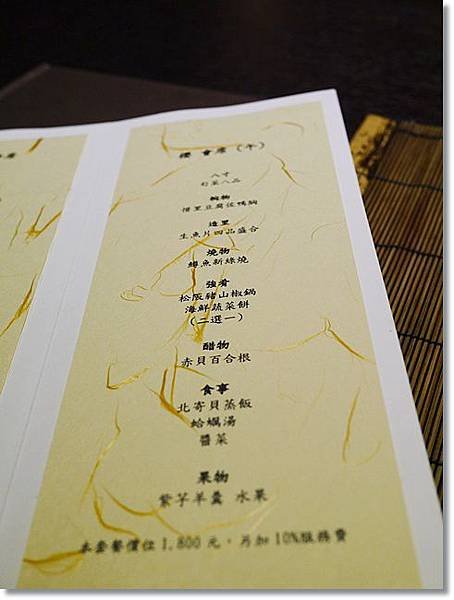 櫻 會席（午）
八寸
旬菜八品
椀物
造里
生魚片四品盛合
燒物
鱒魚新綠燒
強肴
松阪豬山椒鍋
海鮮蔬菜餅
（二選一）
醋物
赤貝百合根
食事
北寄貝蒸飯
蛤蠣湯
醬菜
果物
紫芋羊羹 水果
本套餐價位1,800元，另加10%服務費